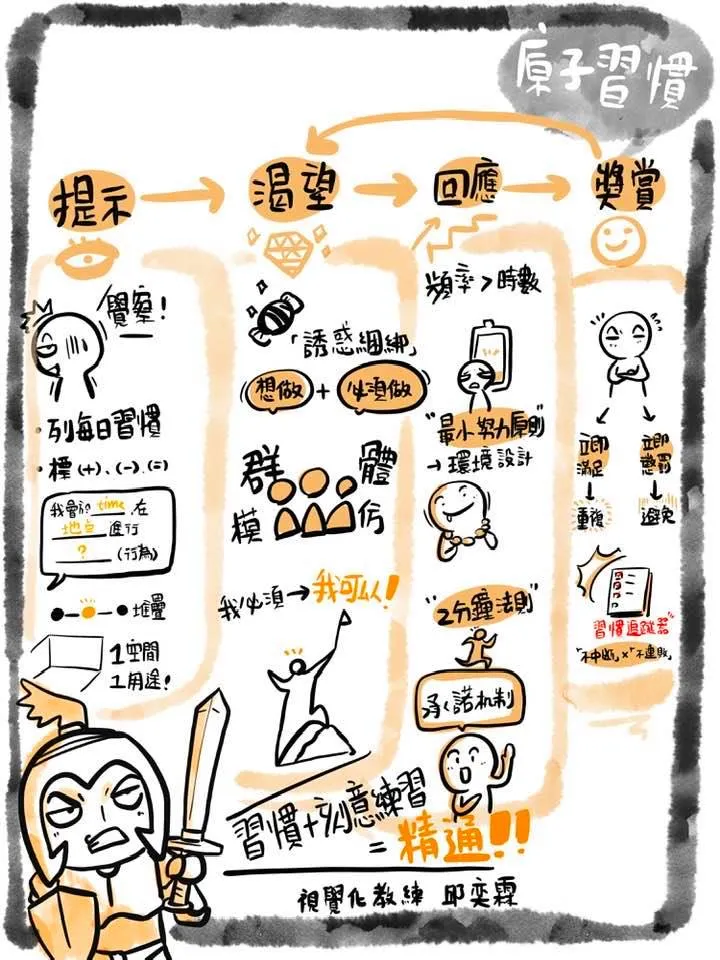 原子習慣
提示
渴望
回應
獎賞
覺察!
・列每日習慣
・標(+)、(-)、(=)
我會於 time 在
地点 進行
? (行為)
堆疊
1空間
1用途!
「誘惑綑綁」
想做 + 必須做
群體
模仿
我必須→我可以!
頻率>時數
"最小努力原則"
→環境設計
"2分鐘法則"
承諾机制
立即
滿足
重複
立即
懲罰
避免
習慣追蹤器
"不中断"x"不連敗"
習慣+刻意練習
=精通!!
視覺化教練 邱奕霖